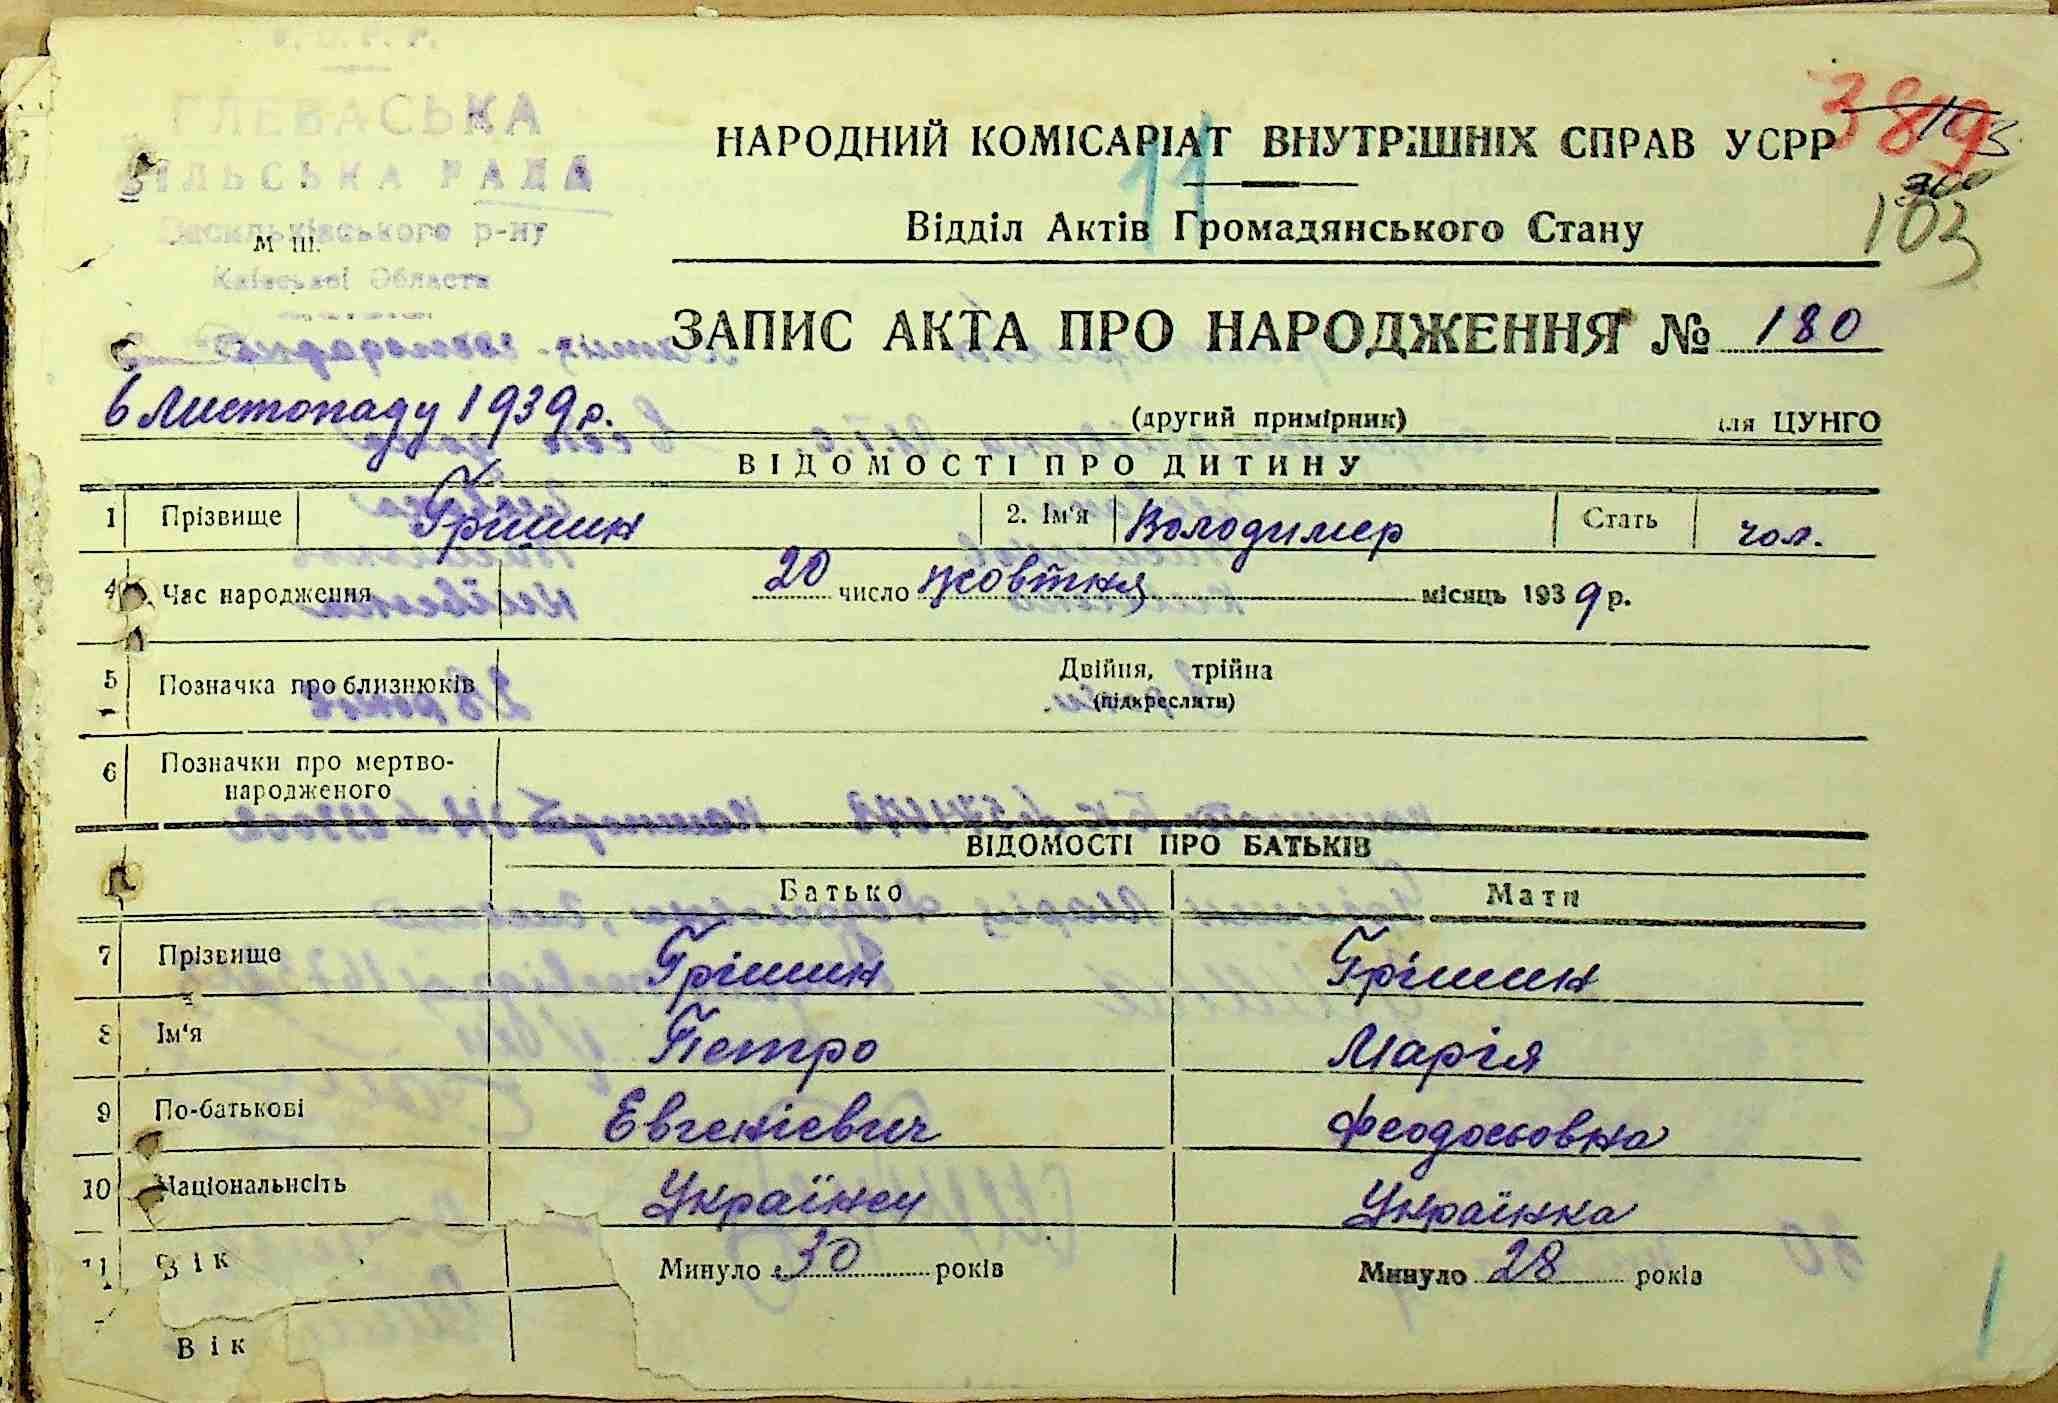 У. С. Р. Р.
ГЛЕВАСЬКА
СІЛЬСЬКА РАДА
Васильківського р-ну
Київської Області
М Ш.
НАРОДНИЙ КОМІСАРІАТ ВНУТРІШНІХ СПРАВ УСРР
11
389
103
Відділ Актів Громадянського Стану
ЗАПИС АКТА ПРО НАРОДЖЕННЯ № 180
6 Листопаду 1939 р. (другий примірник) для ЦУНГО
ВІДОМОСТІ ПРО ДИТИНУ
1 Прізвище Грішин 2. Ім'я Володимер Стать чол.
4 Час народження 20 число жовтня місяць 1939 р.
5 Позначка про близнюків Двійня, трійна
(підкреслити)
6 Позначки про мертво-
народженого
ВІДОМОСТІ ПРО БАТЬКІВ
Батько Мати
7 Прізвище Грішин Грішин
8 Ім'я Петро Марія
9 По-батькові Евгенієвич Феодосьовна
10 Національність Українец Українка
11 Вік Минуло 30 років Минуло 28 років
Вік